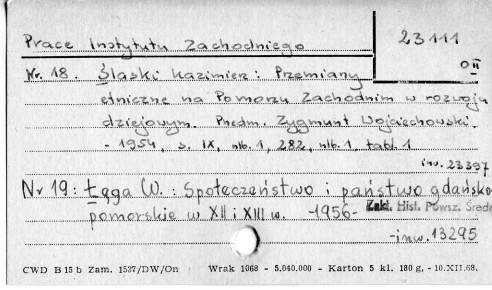 Prace Instytutu Zachodniego
23111
O II
Nr. 18. Ślaski Kazimierz: Przemiany
etniczne na Pomorzu Zachodnim w rozwoju
dziejowym. Przedm. Zygmunt Wojciechowski.
- 1954, s. IX, nlb. 1, 282, nlb. 1, tabl. 1
inw. 23397
Nr 19: Łęga W. : Społeczeństwo i państwo gdańsko
pomorskie w XII i XIII w. -1956-
Zakł. Hist. Powsz. Średn
-inw. 13295
CWD B 15 b Zam. 1537/DW/On Wrak 1068 - 5.040.000 - Karton 5 kl. 180 g. - 10.XII.68.